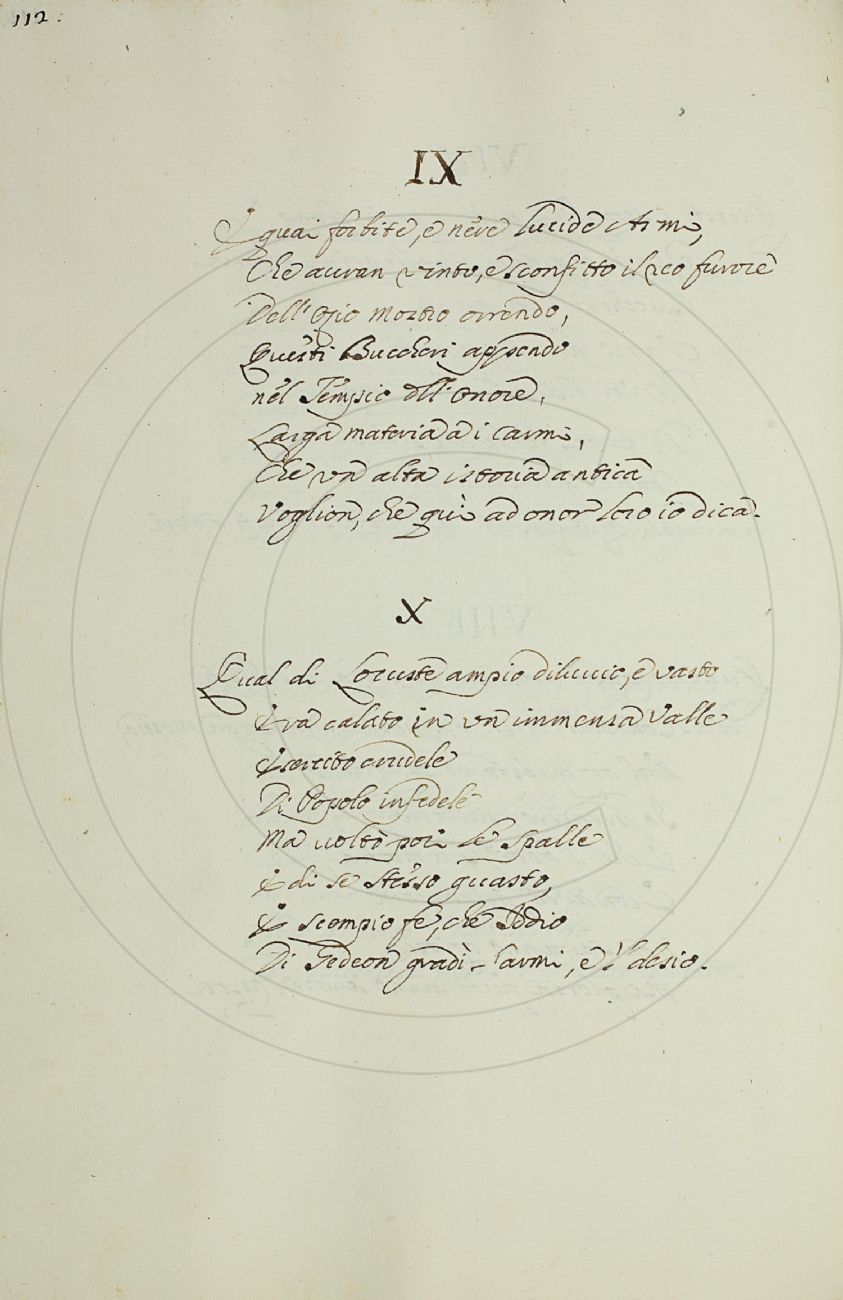 112.
IX
E quai forbite, e nere lucide Armi,
Che auran vinto, e sconfitto il reo furore
Dell'Ozio morbo orrendo,
Questi Buccheri appendo
nel Tempio dell'Onore,
Larga materia à i carmi,
Che un alta istoria antica
Voglion, che quì ad onor loro io dica.
X
Qual di Locuste ampio diluuio, e vasto
Era calato in un immensa Valle
Esercito crudele
Di Popolo infedele
Ma voltò poi le spalle
E di se stesso guasto,
E scempio fe, che Iddio
Di Gedeon gradì l'armi, e 'l desio.